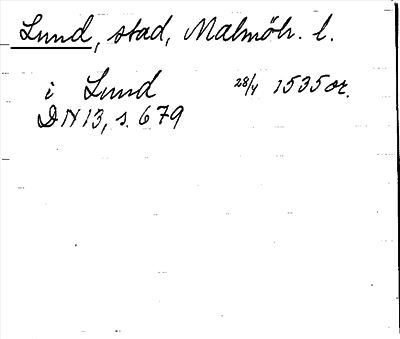 Lund, stad, Malmöh. l.
i Lund 28/4 1535 or.
DN 13, s. 679